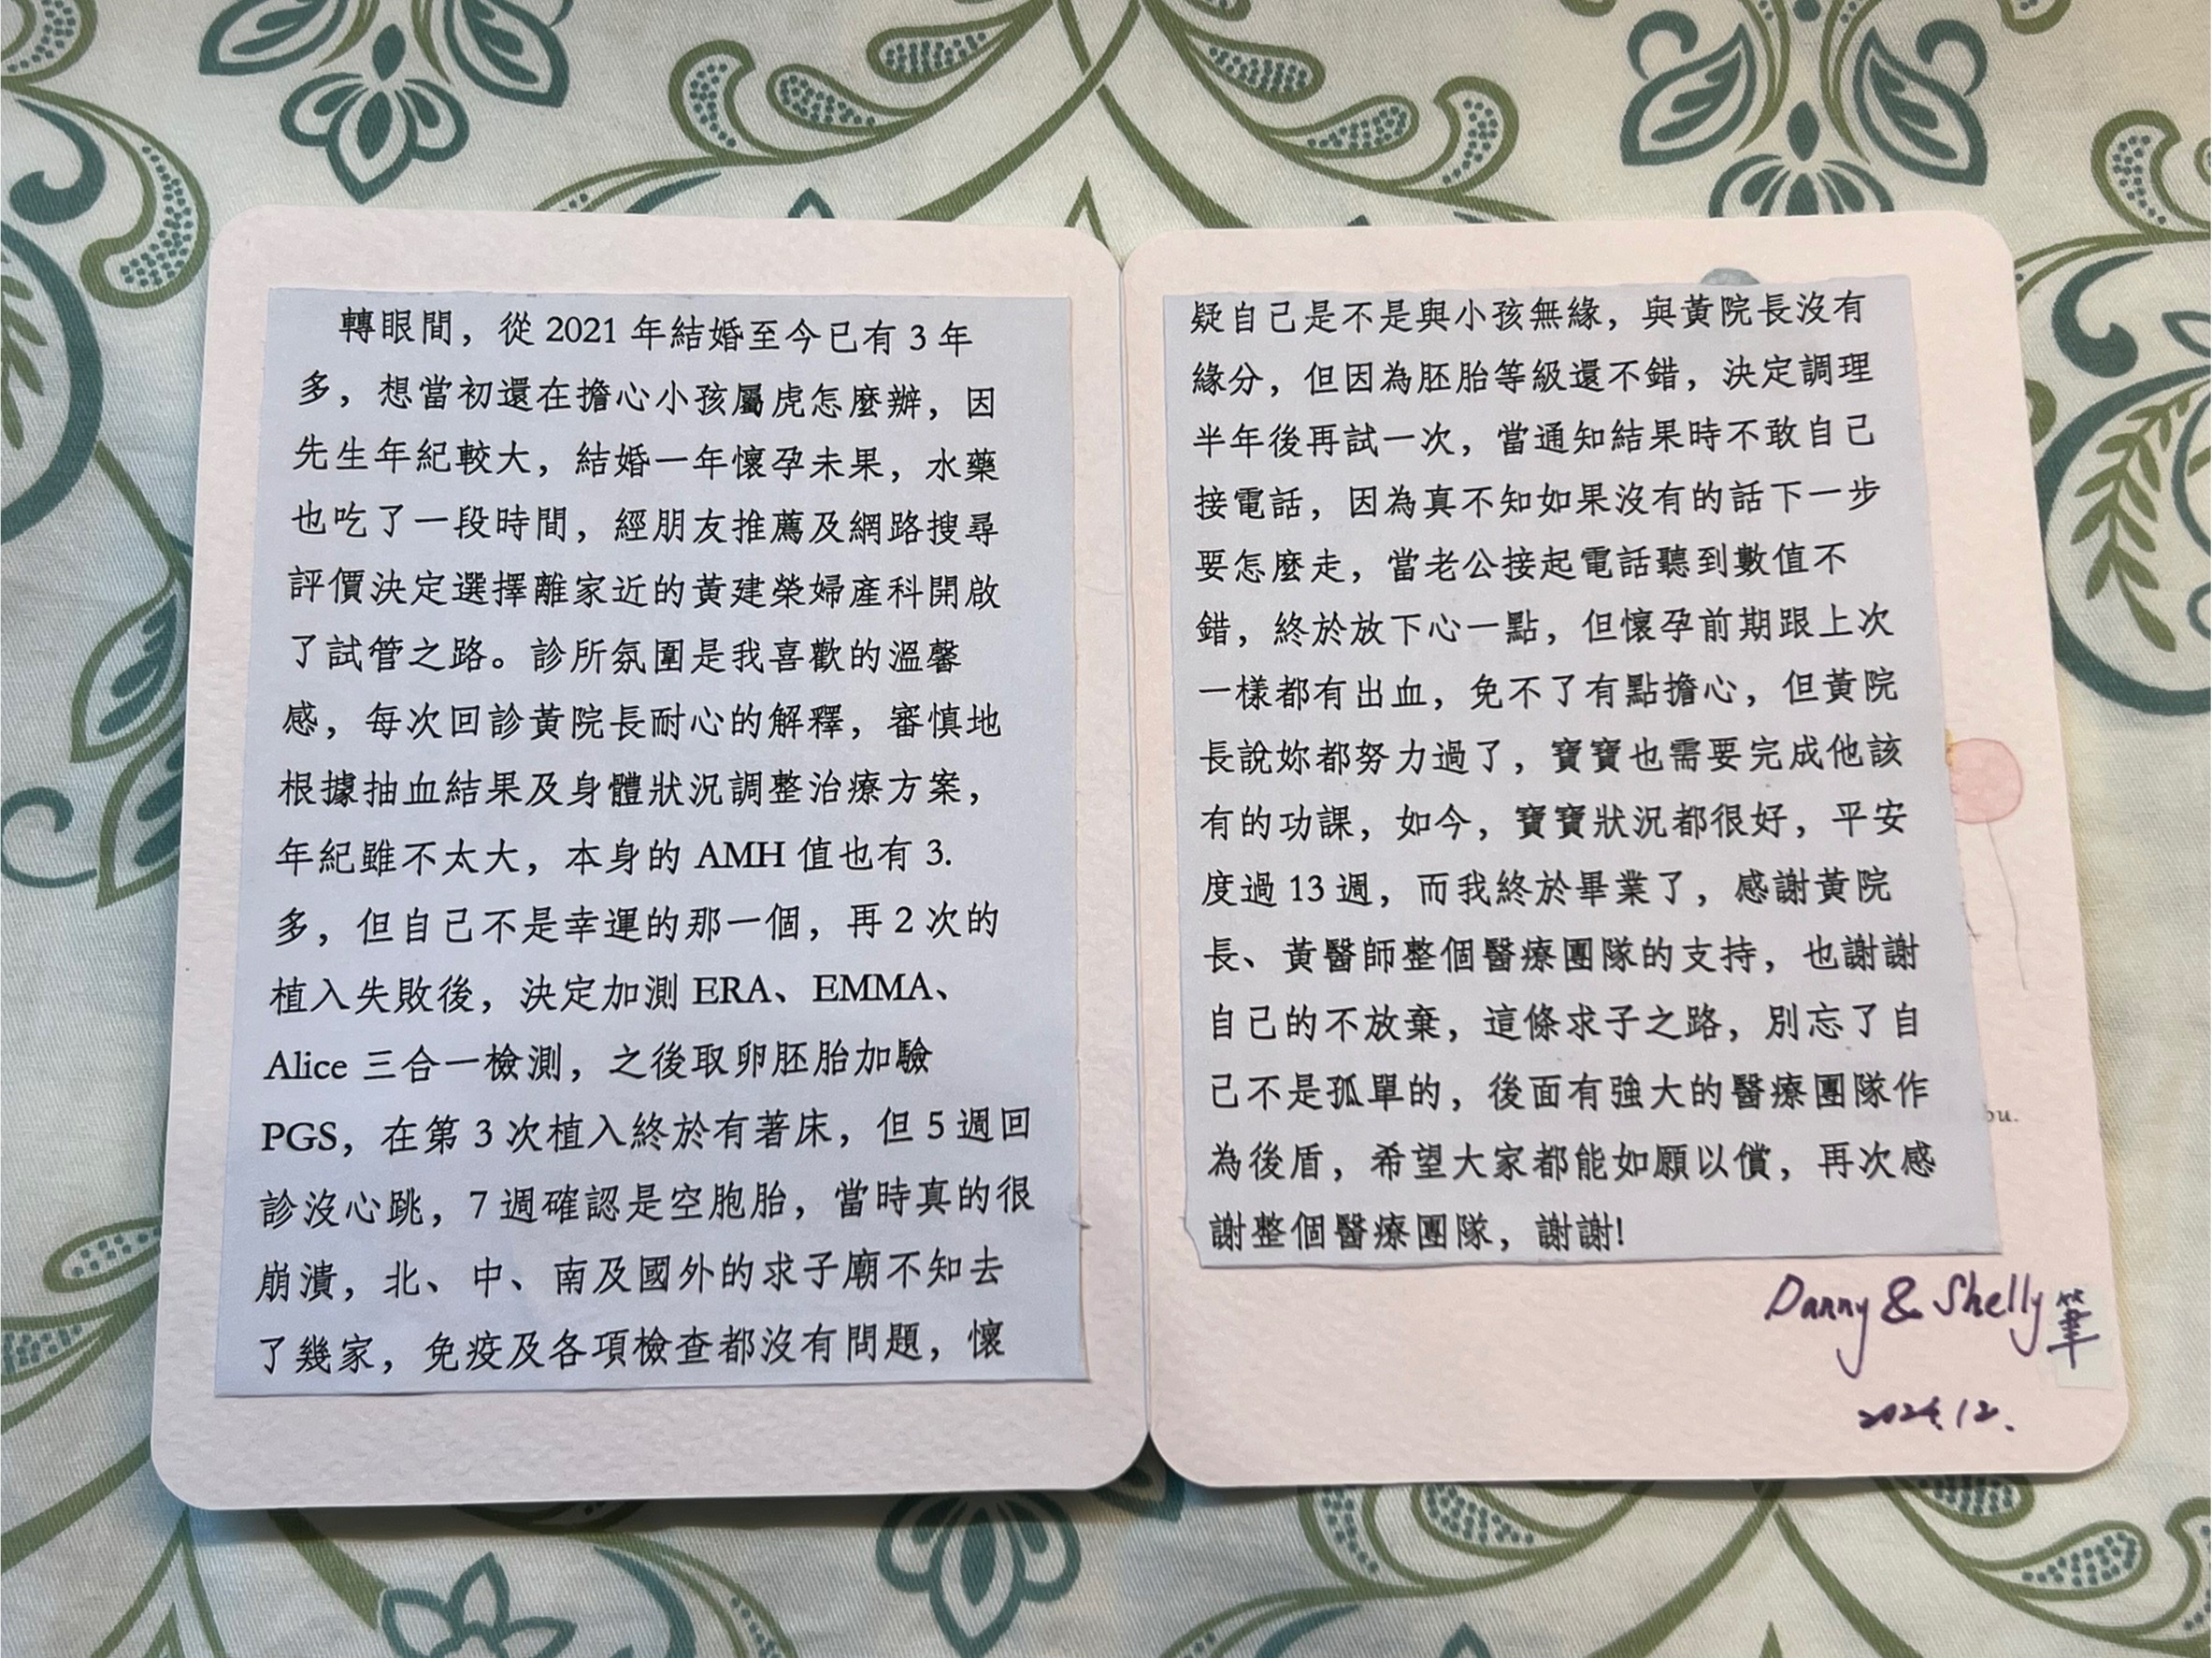 轉眼間，從 2021 年結婚至今已有 3 年
多，想當初還在擔心小孩屬虎怎麼辦，因
先生年紀較大，結婚一年懷孕未果，水藥
也吃了一段時間，經朋友推薦及網路搜尋
評價決定選擇離家近的黃建榮婦產科開啟
了試管之路。診所氛圍是我喜歡的溫馨
感，每次回診黃院長耐心的解釋，審慎地
根據抽血結果及身體狀況調整治療方案，
年紀雖不太大，本身的 AMH 值也有 3.
多，但自己不是幸運的那一個，再 2 次的
植入失敗後，決定加測 ERA、EMMA、
Alice 三合一檢測，之後取卵胚胎加驗
PGS，在第 3 次植入終於有著床，但 5 週回
診沒心跳，7 週確認是空胞胎，當時真的很
崩潰，北、中、南及國外的求子廟不知去
了幾家，免疫及各項檢查都沒有問題，懷
疑自己是不是與小孩無緣，與黃院長沒有
緣分，但因為胚胎等級還不錯，決定調理
半年後再試一次，當通知結果時不敢自己
接電話，因為真不知如果沒有的話下一步
要怎麼走，當老公接起電話聽到數值不
錯，終於放下心一點，但懷孕前期跟上次
一樣都有出血，免不了有點擔心，但黃院
長說妳都努力過了，寶寶也需要完成他該
有的功課，如今，寶寶狀況都很好，平安
度過 13 週，而我終於畢業了，感謝黃院
長、黃醫師整個醫療團隊的支持，也謝謝
自己的不放棄，這條求子之路，別忘了自
己不是孤單的，後面有強大的醫療團隊作
為後盾，希望大家都能如願以償，再次感
謝整個醫療團隊，謝謝!
Danny & Shelly 筆
2024.12.